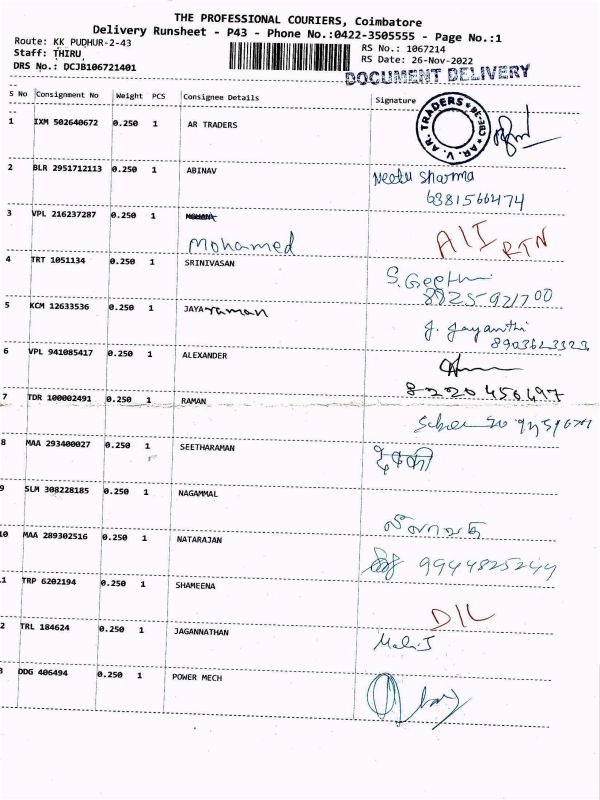 THE PROFESSIONAL COURIERS, Coimbatore
Delivery Runsheet - P43 - Phone No.:0422-3505555 - Page No.:1
Route: KK PUDHUR-2-43
RS No.: 1067214
Staff: THIRU
RS Date: 26-Nov-2022
DRS No.: DCJB106721401
DOCUMENT DELIVERY
S No Consignment No Weight PCS Consignee Details Signature
1 IXM 502640672 0.250 1 AR TRADERS
A.R. V. AR. TRADERS ★ CBE-38 ★
2 BLR 2951712113 0.250 1 ABINAV
Neetu Sharma
6381566474
3 VPL 216237287 0.250 1
Mohamed
AII RTN
4 TRT 1051134 0.250 1 SRINIVASAN
S. Geetha
8825921700
5 KCM 12633536 0.250 1 JAYAraman
J. Jayanthi
8903623323
6 VPL 941085417 0.250 1 ALEXANDER
8220456497
7 TDR 100002491 0.250 1 RAMAN
8 MAA 293400027 0.250 1 SEETHARAMAN
9 SLM 308228185 0.250 1 NAGAMMAL
10 MAA 289302516 0.250 1 NATARAJAN
9944825244
1 TRP 6202194 0.250 1 SHAMEENA
D/L
2 TRL 184624 0.250 1 JAGANNATHAN
3 DDG 406494 0.250 1 POWER MECH